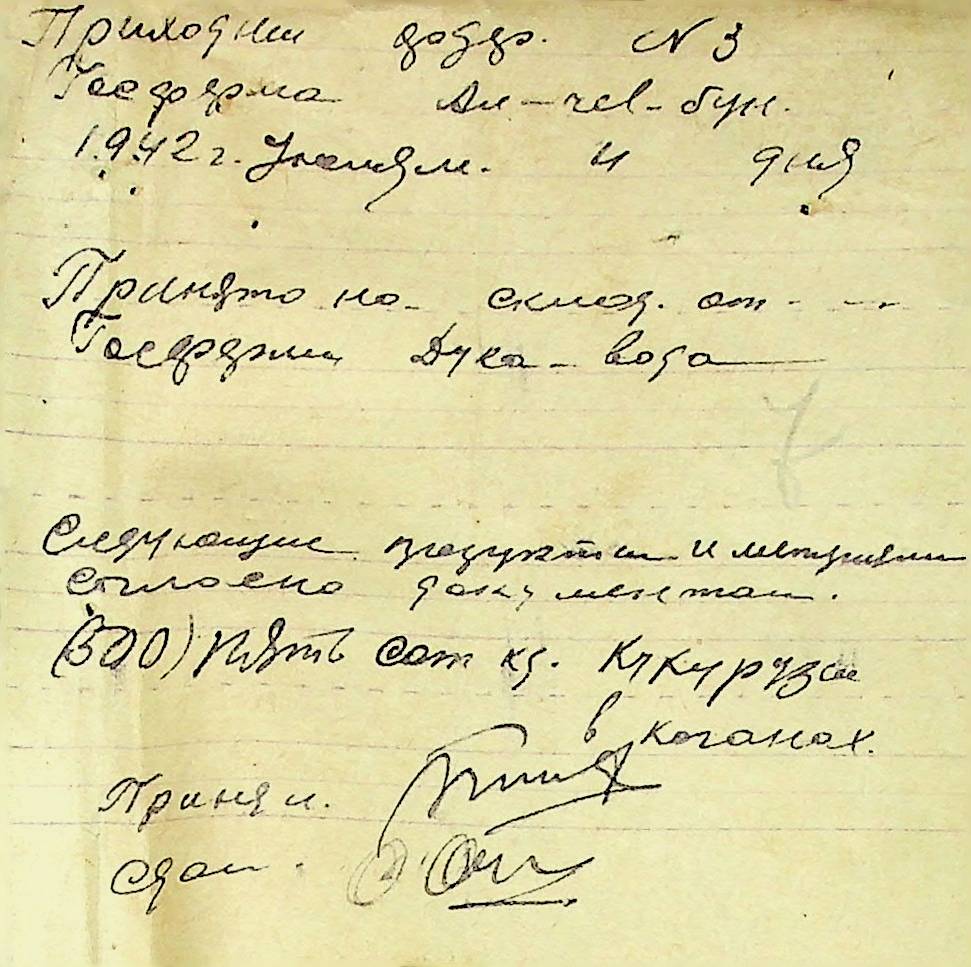 Приходни ордер. N 3
Госферма Ал-чев-бун.
1942 г. 4 дня
Принято на склад. от
Госферми Дука-вода
Следующие продукти и материали
согласно документам.
(500) Пять сот кг. Кукурузи
в качанах.
Принял.
сдал.